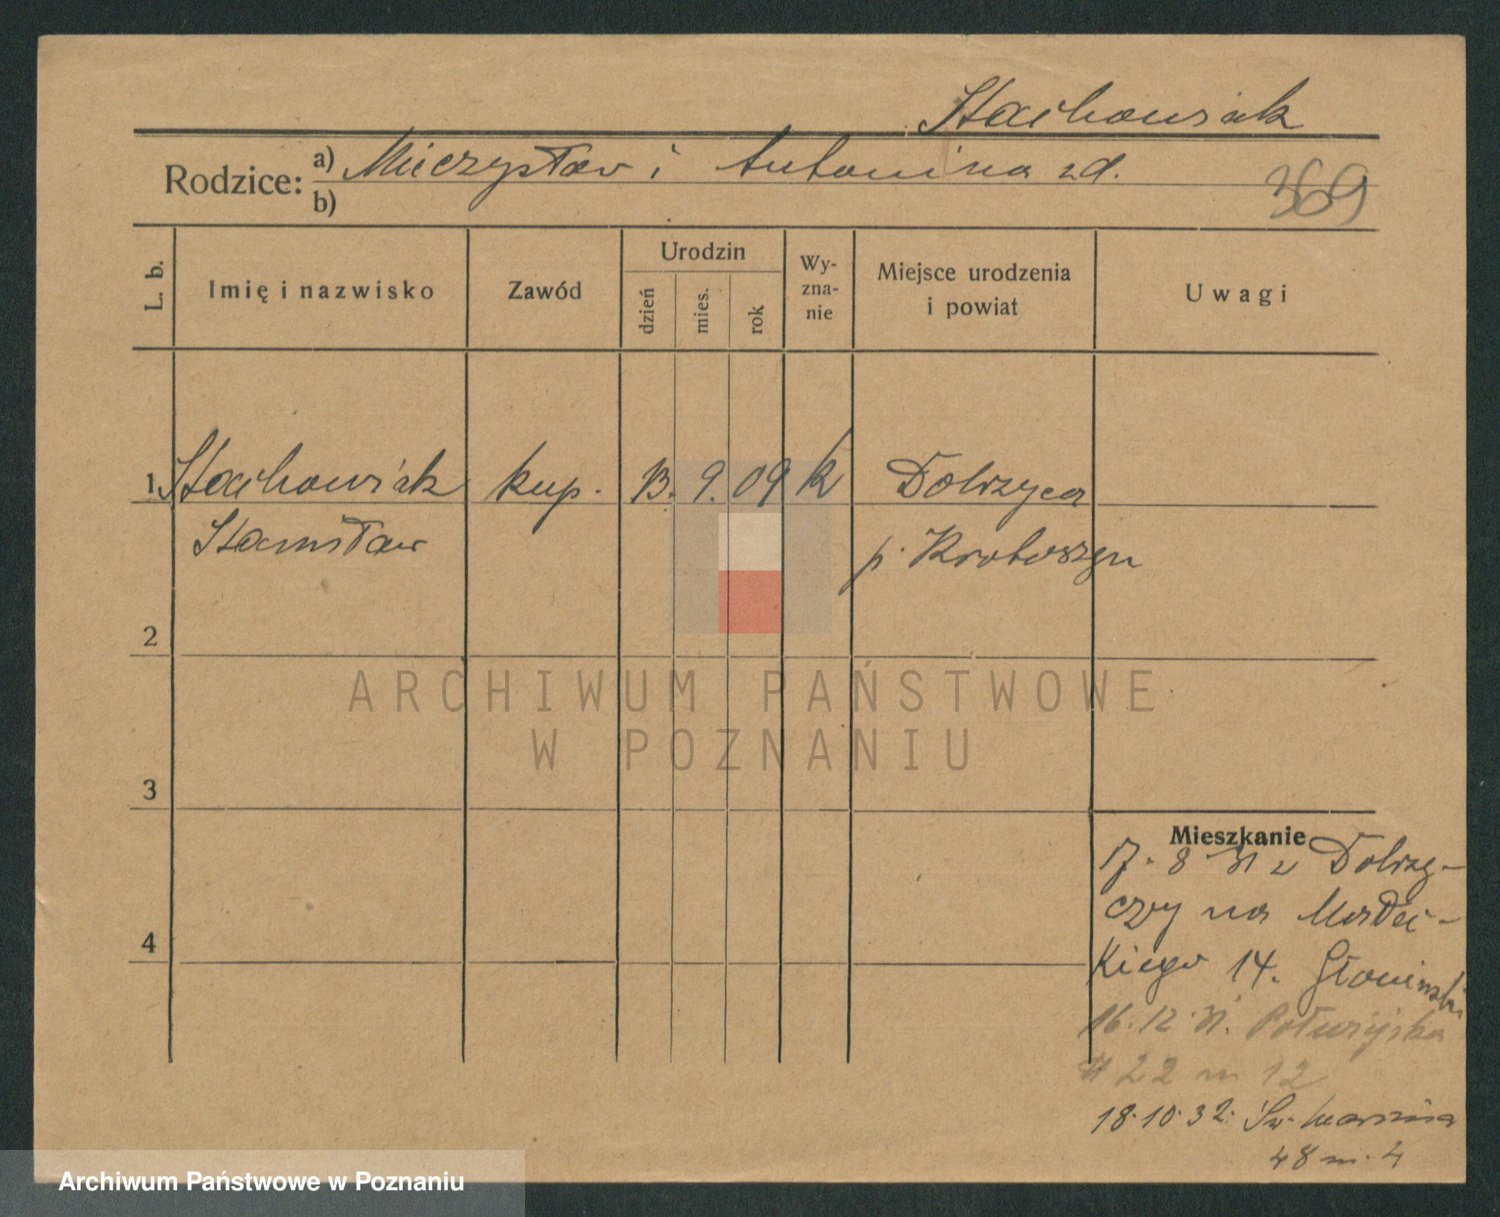 Stachowiak
Rodzice: a) Mieczysław i Antonina zd.
b)
369
L. b.
Imię i nazwisko
Zawód
Urodzin
dzień
mies.
rok
Wy-
zna-
nie
Miejsce urodzenia
i powiat
Uwagi
1 Stachowiak kup. 13. 9. 09 k Dobrzyca
Stanisław p. Krotoszyn
2
3
4
Mieszkanie
17. 8 31 z Dobrzy-
czy na
kiego 14.
16.12.31.
22 m 12
18.10.32. Św. Marcina
48 m. 4
ARCHIWUM PAŃSTWOWE
W POZNANIU
Archiwum Państwowe w Poznaniu